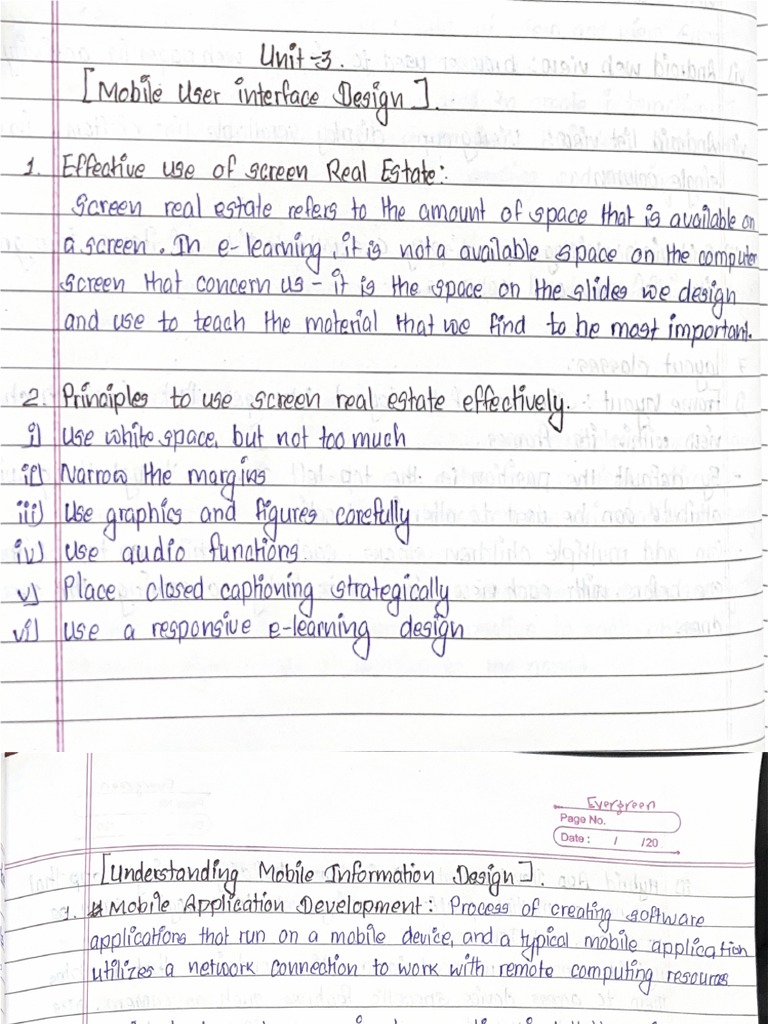 Unit-3.
[Mobile User interface Design].
1. Effective use of screen Real Estate:
Screen real estate refers to the amount of space that is available on
a screen. In e-learning, it is not a available space on the computer
screen that concern us - it is the space on the slides we design
and use to teach the material that we find to be most important.
2. Principles to use screen real estate effectively.
i) Use white space, but not too much
ii) Narrow the margins
iii) Use graphics and figures carefully
iv) Use audio functions
v) Place closed captioning strategically
vi) Use a responsive e-learning design
Evergreen
Page No.
Date: / /20
[Understanding Mobile Information Design].
1. # Mobile Application Development: Process of creating software
applications that run on a mobile device, and a typical mobile application
utilizes a network connection to work with remote computing